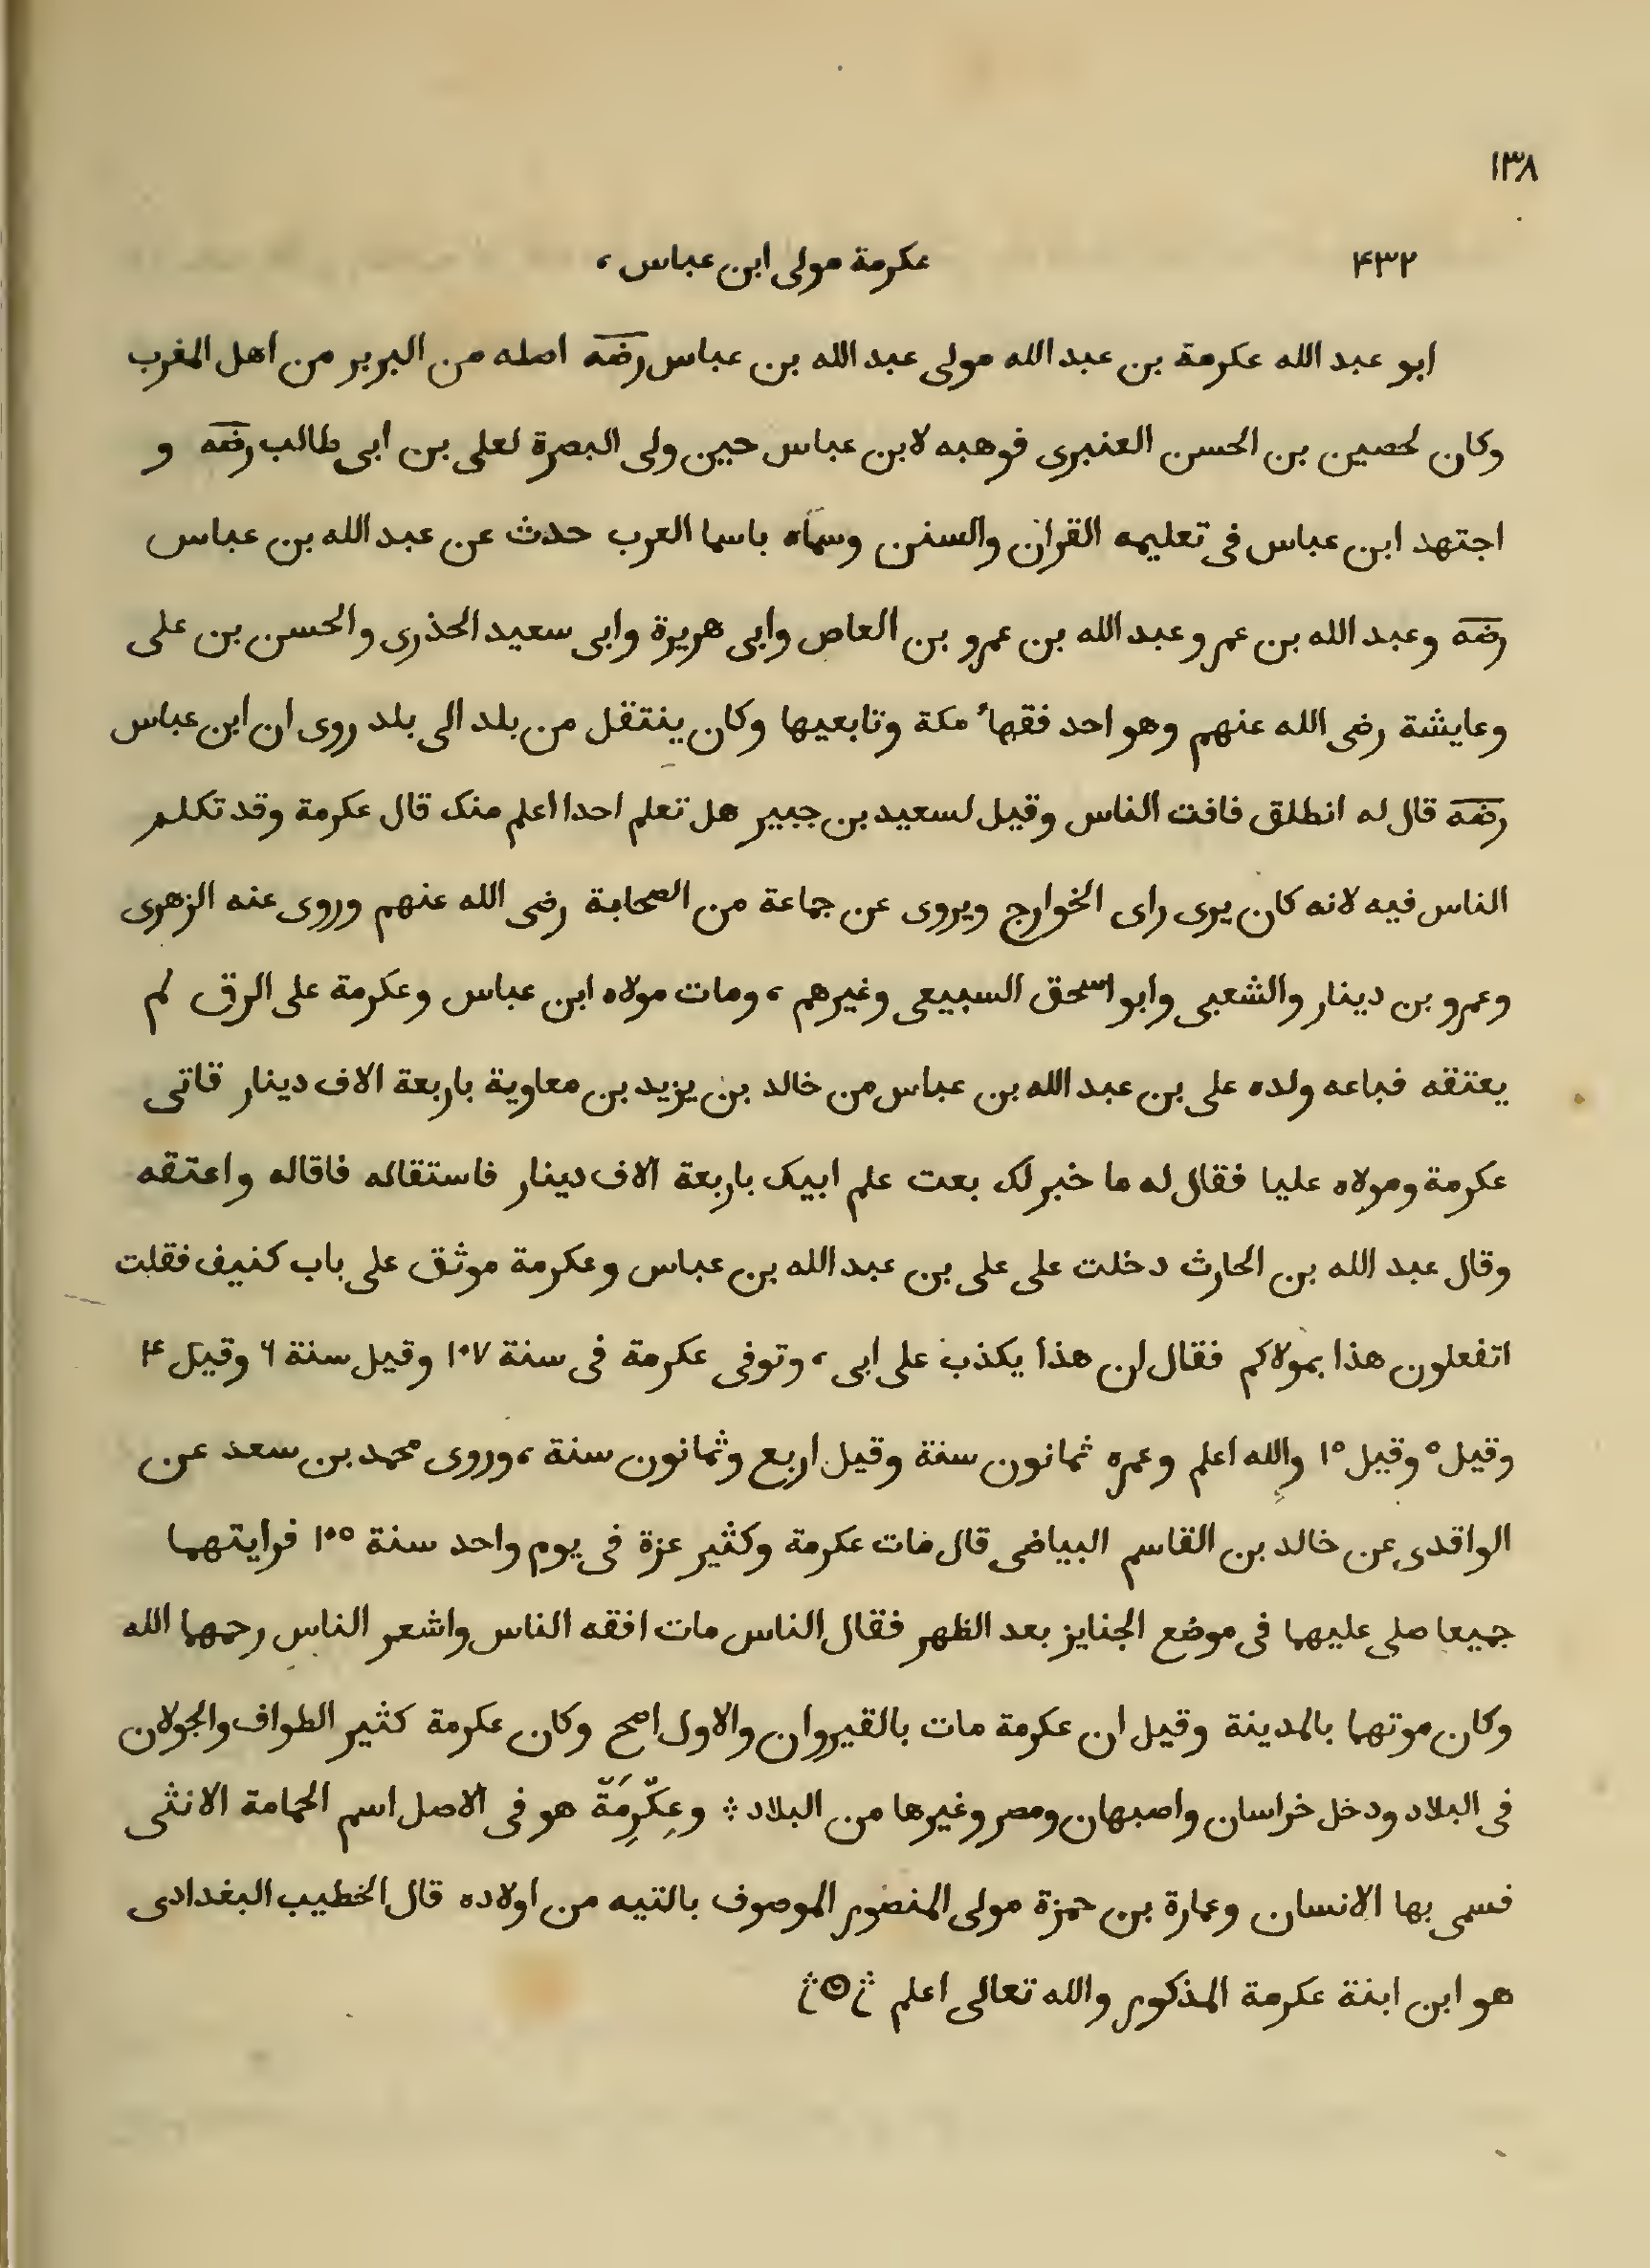 ١٣٨
٤٣٢ عكرمة مولى ابن عباس،
ابو عبد الله عكرمة بن عبد الله مولى عبد الله بن عباس رضه اصله من البربر من اهل المغرب
وكان لحصين بن الحسن العنبرى فوهبه لابن عباس حين ولى البصرة لعلى بن ابى طالب رضه و
اجتهد ابن عباس فى تعليمه القران والسنن وسمّاه باسما العرب حدث عن عبد الله بن عباس
رضه وعبد الله بن عمر وعبد الله بن عمرو بن العاص وابى هريرة وابى سعيد الخذرى والحسن بن على
وعايشة رضى الله عنهم وهو احد فقهاء مكة وتابعيها وكان ينتقل من بلد الى بلد روى ان ابن عباس
رضه قال له انطلق فافت الناس وقيل لسعيد بن جبير هل تعلم احدا اعلم منك قال عكرمة وقد تكلم
الناس فيه لانه كان يرى راى الخوارج ويروى عن جماعة من الصحابة رضى الله عنهم وروى عنه الزهرى
وعمرو بن دينار والشعبى وابو اسحق السبيعى وغيرهم، ومات مولاه ابن عباس وعكرمة على الرق لم
يعتقه فباعه ولده على بن عبد الله بن عباس من خالد بن يزيد بن معاوية باربعة الاف دينار قاتى
عكرمة ومولاه عليا فقال له ما خبر لك بعت علم ابيك باربعة الاف دينار فاستقاله فاقاله واعتقه
وقال عبد الله بن الحارث دخلت على على بن عبد الله بن عباس وعكرمة موثق على باب كنيف فقلت
اتفعلون هذا بمولاكم فقال ان هذا يكذب على ابى، وتوفى عكرمة فى سنة ١٠٧ وقيل سنة ٦ وقيل ٤
وقيل ٥ وقيل ١٥ والله اعلم وعمره ثمانون سنة وقيل اربع وثمانون سنة، وروى محمد بن سعد عن
الواقدى عن خالد بن القاسم البياضى قال مات عكرمة وكثير عزة فى يوم واحد سنة ١٠٥ فرايتهما
جميعا صلى عليهما فى موضع الجنايز بعد الظهر فقال الناس مات افقه الناس واشعر الناس رحمهما الله
وكان موتهما بالمدينة وقيل ان عكرمة مات بالقيروان والاول اصح وكان عكرمة كثير الطواف والجولان
فى البلاد ودخل خراسان واصبهان ومصر وغيرها من البلاد ؞ وعِكْرِمَةُ هو فى الاصل اسم الحمامة الانثى
فسمى بها الانسان وعمارة بن حمزة مولى المنصور الموصوف بالتيه من اولاده قال الخطيب البغدادى
هو ابن ابنة عكرمة المذكور والله تعالى اعلم